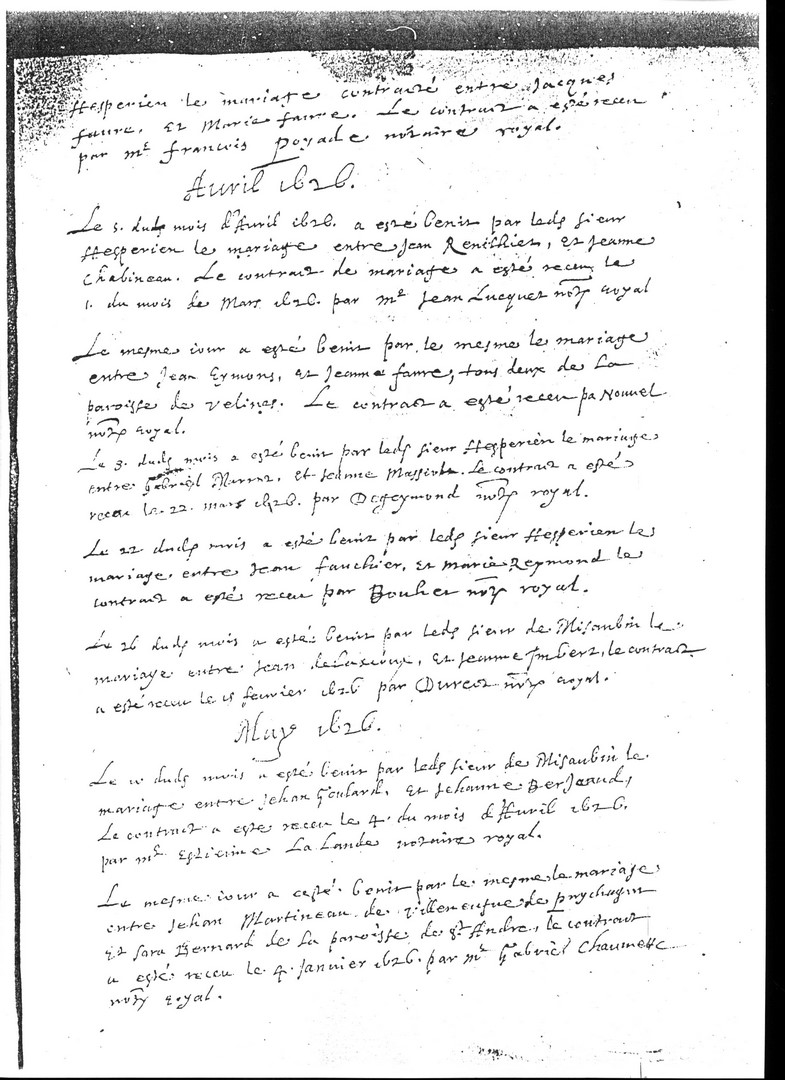 Hesperien le mariage contracté entre Jacques
faure, Et Marie faure. Le contract a esté receu
par mᵉ francois poyade notaire royal.
Auril 1626.
Le 5. dudᵗ mois d'Auril 1626. a esté benit par ledᵗ sieur
Hesperien le mariage entre Jean Renilhiet, Et Jeanne
Chabineau. Le contract de mariage a esté receu le
1. du mois de Mars 1626. par mᵉ Jean Lucquet notʳᵉ royal
Le mesme iour a esté benit par le mesme le mariage
entre Jean Eymons, Et Jeanne faure, tous deux de La
paroisse de velines. Le contract a esté receu pa Nouvel
notʳᵉ royal.
Le 3. dudᵗ mois a esté benit par ledᵗ sieur Hesperien le mariage
entre Gabriel Et Jeanne Le contract a esté
receu le 22. mars 1626. par Degeymond notʳᵉ royal.
Le 22 dudᵗ mois a esté benit par ledᵗ sieur Hesperien le
mariage entre Jean fauchier, Et Marie Reymond le
contract a esté receu par Bouhet notʳᵉ royal.
Le 26 dudᵗ mois a esté benit par ledᵗ sieur de Misaubin le
mariage entre Jean Et Jeanne Jmbert, le contract
a esté receu le 15 feurier 1626 par Durcot notʳᵉ royal.
May 1626.
Le 10 dudᵗ mois a esté benit par ledᵗ sieur de Misaubin le
mariage entre Jehan Goulard, Et Jehanne Berjeaud,
Le contract a este receu le 4. du mois d'Auril 1626.
par mᵉ Estienne La Lande notaire royal.
Le mesme iour a esté benit par le mesme le mariage
entre Jehan Martineau de Villeneufue de puychagut
Et Sara Bernard de La paroisse de Sᵗ Andre, le contract
a esté receu le 4. Januier 1626. par mᵉ Gabriel Chaumette
notʳᵉ royal.